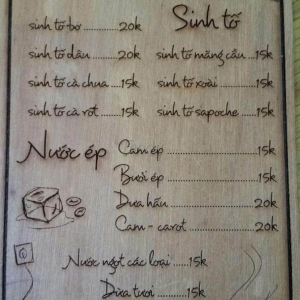 Sinh tố
sinh tố bơ ............ 20k
sinh tố dâu .......... 20k
sinh tố mãng cầu ... 15k
sinh tố cà chua .... 15k
sinh tố xoài ........ 15k
sinh tố cà rốt ..... 15k
sinh tố sapoche ... 15k
Nước ép
Cam ép .................... 15k
Bưởi ép .................. 15k
Dưa hấu ................. 20k
Cam - carot ............ 20k
Nước ngọt các loại ..... 15k
Dừa tươi ..... 15k